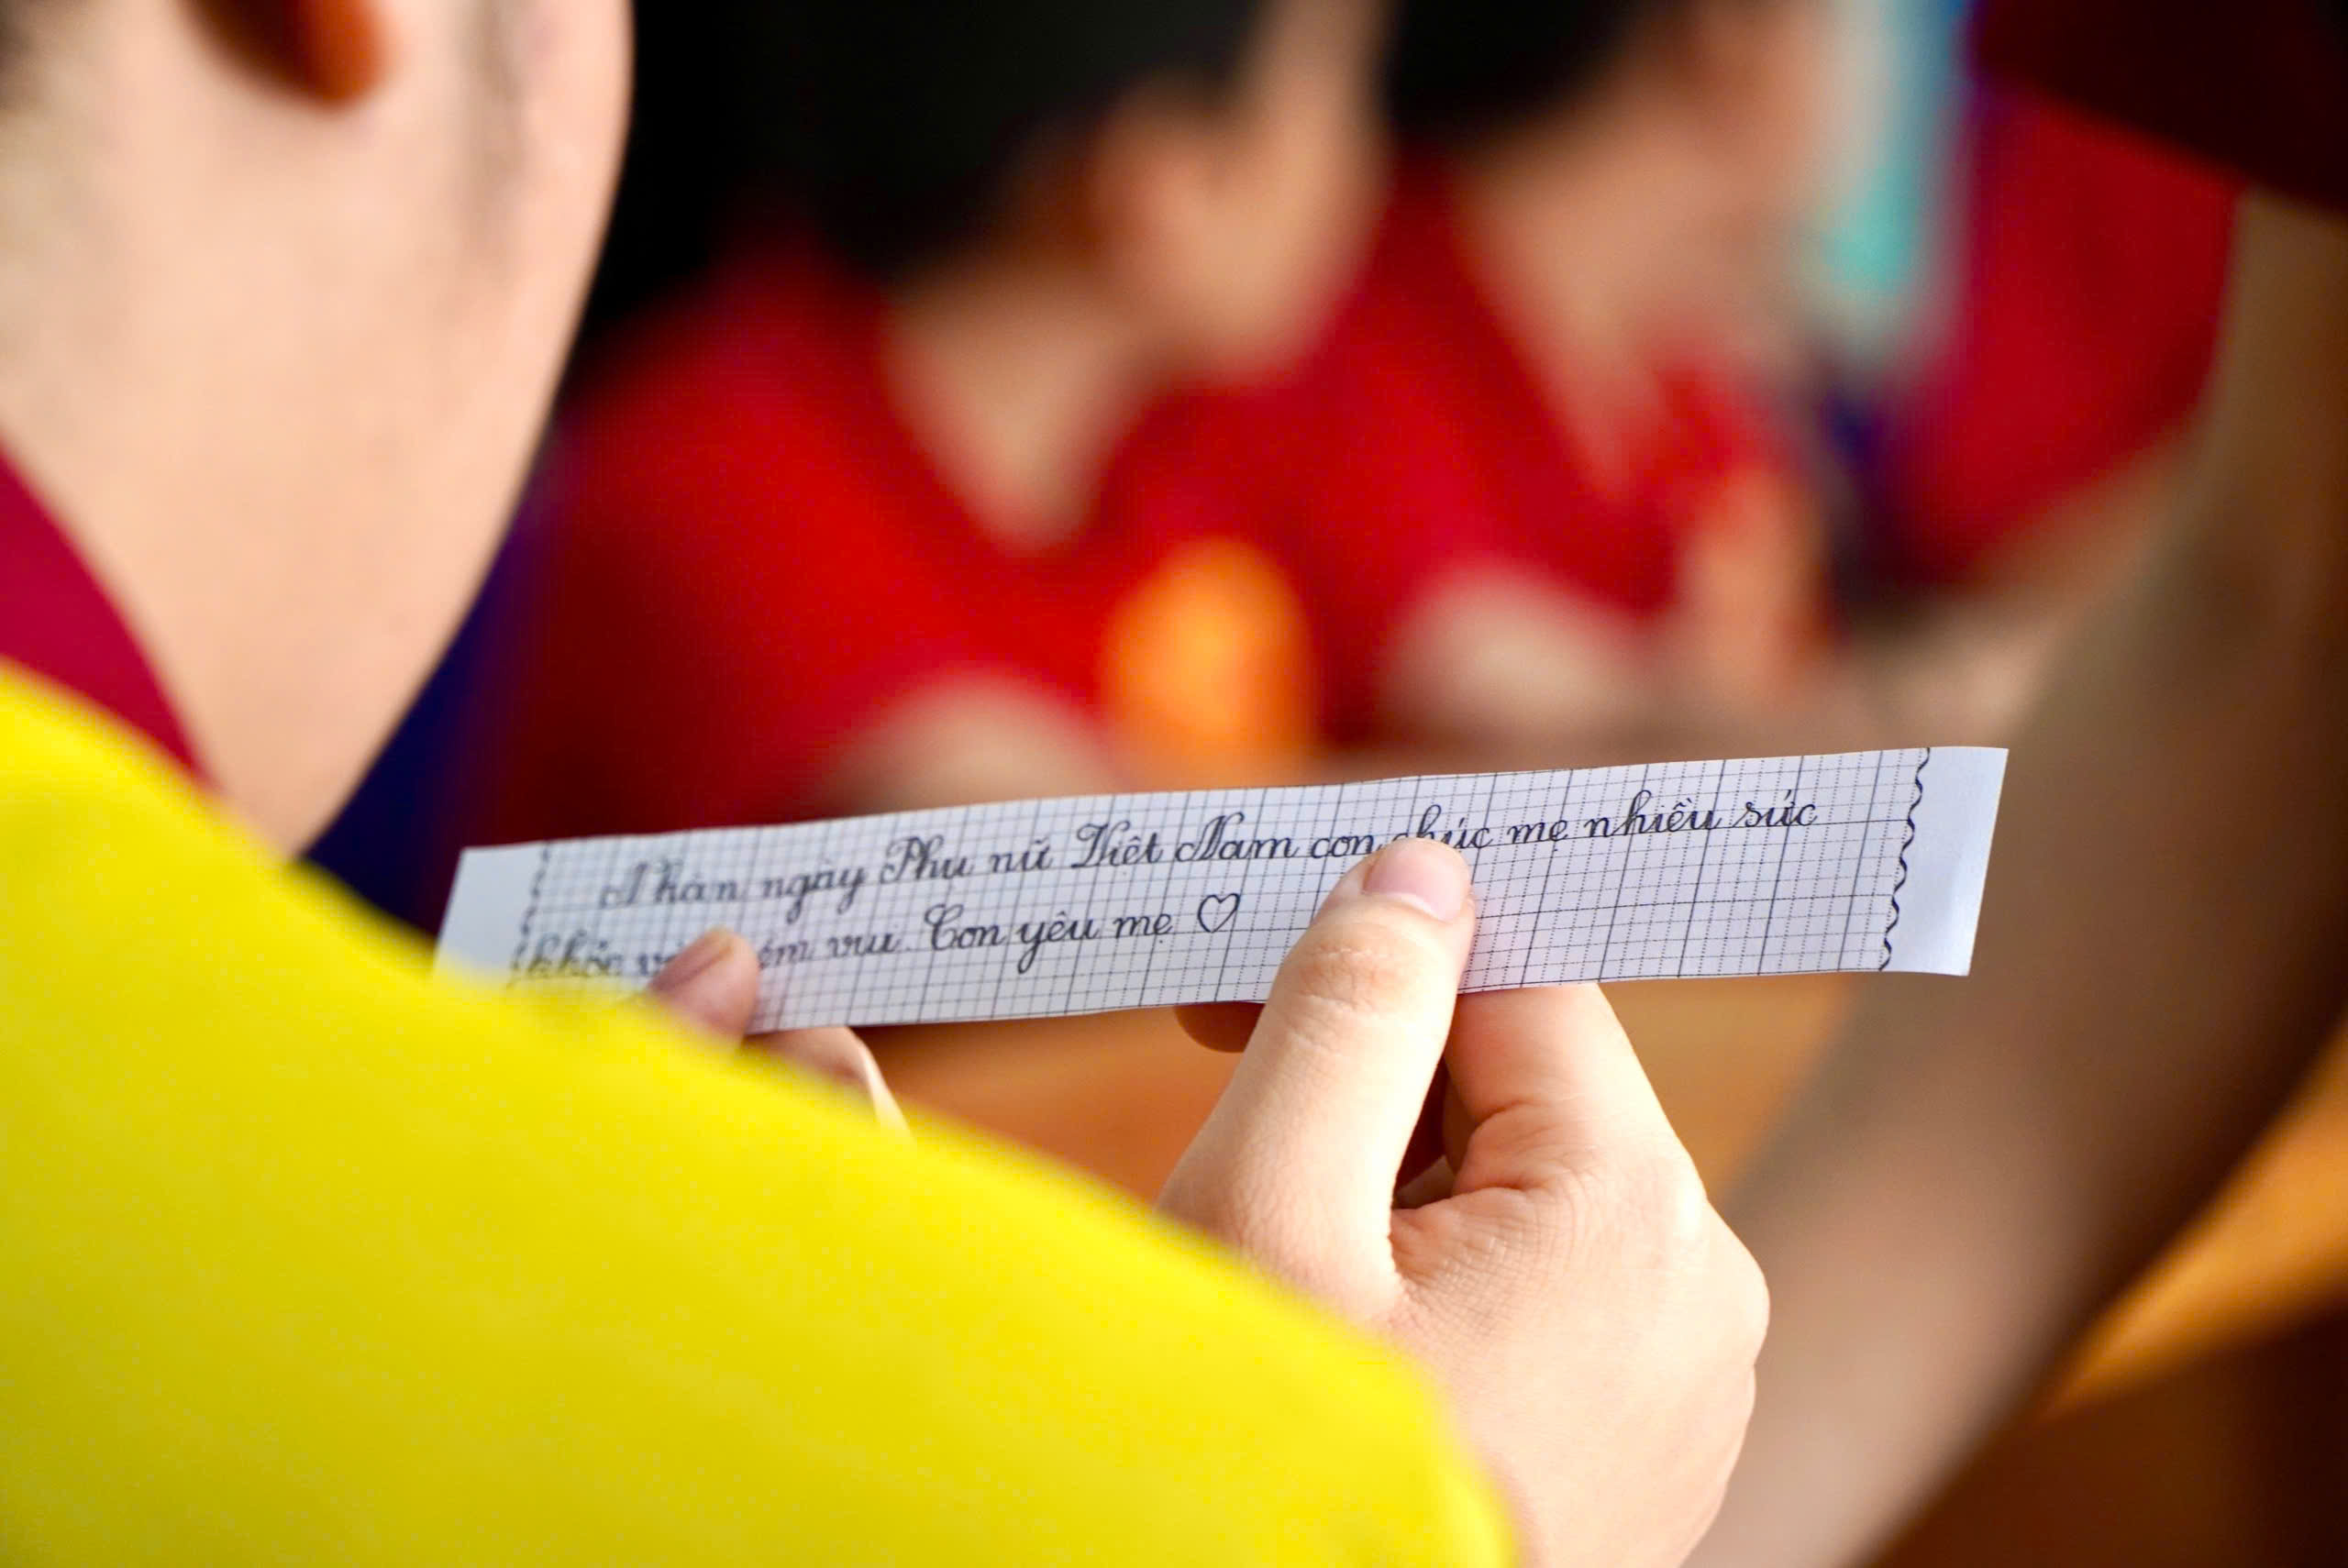 Nhân ngày Phụ nữ Việt Nam con chúc mẹ nhiều sức
khỏe vui. Con yêu mẹ ♡